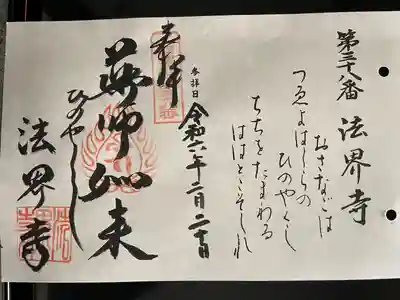 第三十八番 法界寺
おさなごは
つゑよはしらの
ひのやくし
ちちをたまわる
ははとこそしれ
参拝日
令和六年二月二十日
奉拝
薬師如来
ひのやくし
法界寺